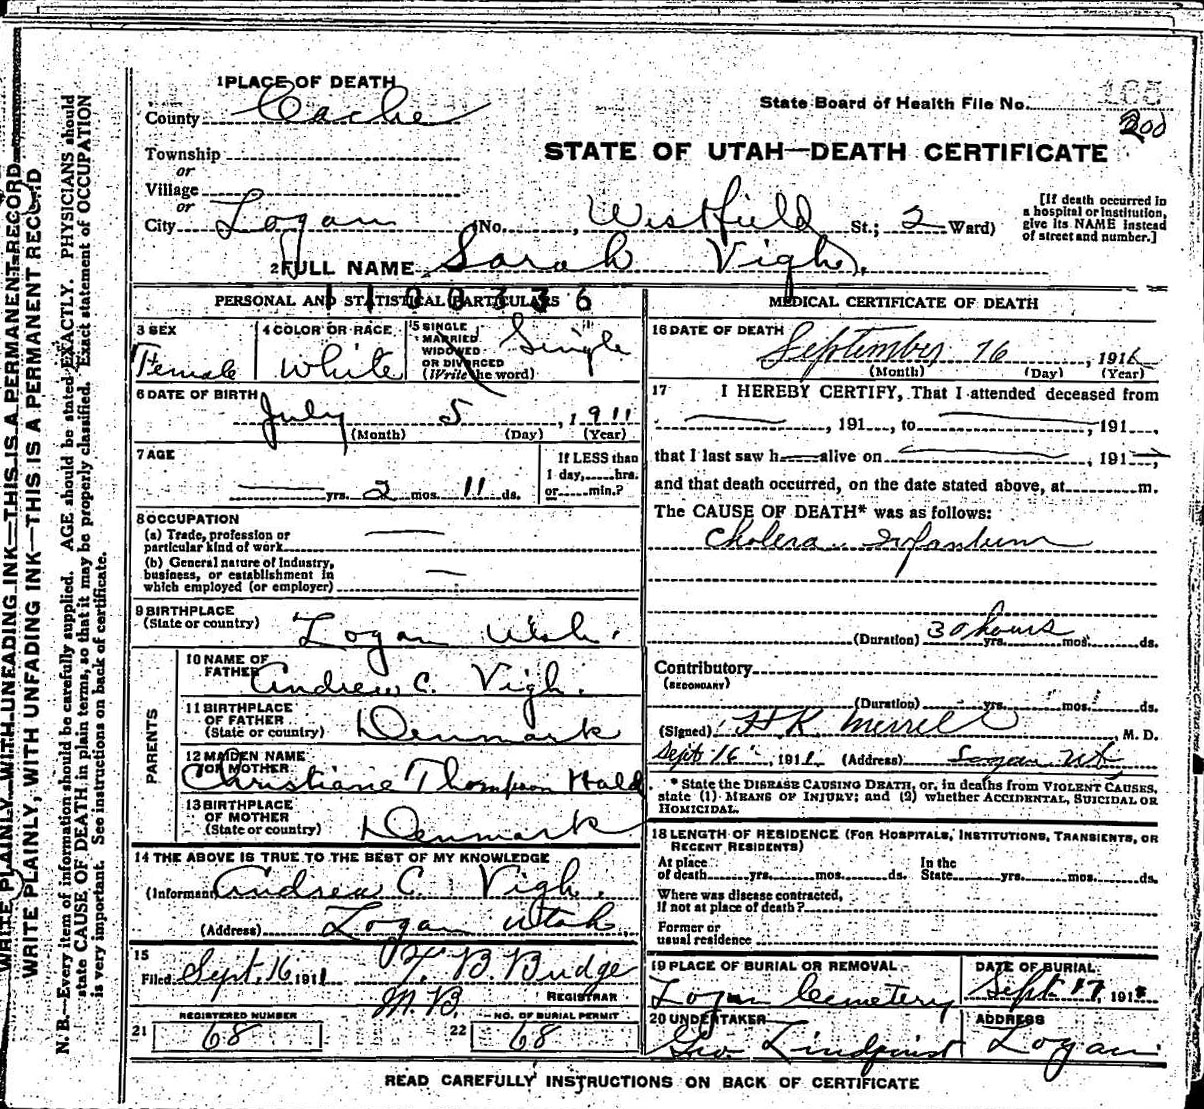 1 PLACE OF DEATH
County Cache
State Board of Health File No. 165
200
Township
or
Village
or
City Logan (No. , Westfield St.; 2 Ward)
STATE OF UTAH—DEATH CERTIFICATE
[If death occurred in
a hospital or institution,
give its NAME instead
of street and number.]
2 FULL NAME Sarah Vigh.
1100336
PERSONAL AND STATISTICAL PARTICULARS
3 SEX
Female
4 COLOR OR RACE
White
5 SINGLE
MARRIED
WIDOWED
OR DIVORCED
(Write the word)
Single
6 DATE OF BIRTH
July 5, 1911
(Month) (Day) (Year)
7 AGE
yrs. 2 mos. 11 ds.
If LESS than
1 day, hrs.
or min.?
8 OCCUPATION
(a) Trade, profession or
particular kind of work
(b) General nature of Industry,
business, or establishment in
which employed (or employer)
9 BIRTHPLACE
(State or country) Logan Utah.
PARENTS
10 NAME OF
FATHER Andrew C. Vigh.
11 BIRTHPLACE
OF FATHER
(State or country) Denmark
12 MAIDEN NAME
OF MOTHER
Christiane Thompson Hald
13 BIRTHPLACE
OF MOTHER
(State or country) Denmark
14 THE ABOVE IS TRUE TO THE BEST OF MY KNOWLEDGE
(Informant Andrew C. Vigh.
(Address) Logan Utah.
15
Filed Sept. 16 1911 T. B. Budge
M.D. REGISTRAR
REGISTERED NUMBER
21 68
NO. OF BURIAL PERMIT
22 68
MEDICAL CERTIFICATE OF DEATH
16 DATE OF DEATH
September 16, 1911
(Month) (Day) (Year)
17 I HEREBY CERTIFY, That I attended deceased from
, 191 , to , 191 ,
that I last saw h alive on , 191 ,
and that death occurred, on the date stated above, at m.
The CAUSE OF DEATH* was as follows:
Cholera Infantum
(Duration) 30 hours yrs. mos. ds.
Contributory
(SECONDARY)
(Duration) yrs. mos. ds.
(Signed) H. K. Merrel, M. D.
Sept 16, 1911 (Address) Logan Ut
* State the DISEASE CAUSING DEATH, or, in deaths from VIOLENT CAUSES,
state (1) MEANS OF INJURY; and (2) whether ACCIDENTAL, SUICIDAL OR
HOMICIDAL.
18 LENGTH OF RESIDENCE (FOR HOSPITALS, INSTITUTIONS, TRANSIENTS, OR
RECENT RESIDENTS)
At place
of death yrs. mos. ds.
In the
State yrs. mos. ds.
Where was disease contracted,
If not at place of death?
Former or
usual residence
19 PLACE OF BURIAL OR REMOVAL
Logan Cemetery
DATE OF BURIAL
Sept 17, 1911
20 UNDERTAKER
Geo. Lindquist
ADDRESS
Logan
READ CAREFULLY INSTRUCTIONS ON BACK OF CERTIFICATE
WRITE PLAINLY WITH UNFADING INK—THIS IS A PERMANENT RECORD
WRITE PLAINLY, WITH UNFADING INK—THIS IS A PERMANENT RECORD
N. B.—Every item of information should be carefully supplied. AGE should be stated EXACTLY. PHYSICIANS should
state CAUSE OF DEATH in plain terms, so that it may be properly classified. Exact statement of OCCUPATION
is very important. See instructions on back of certificate.